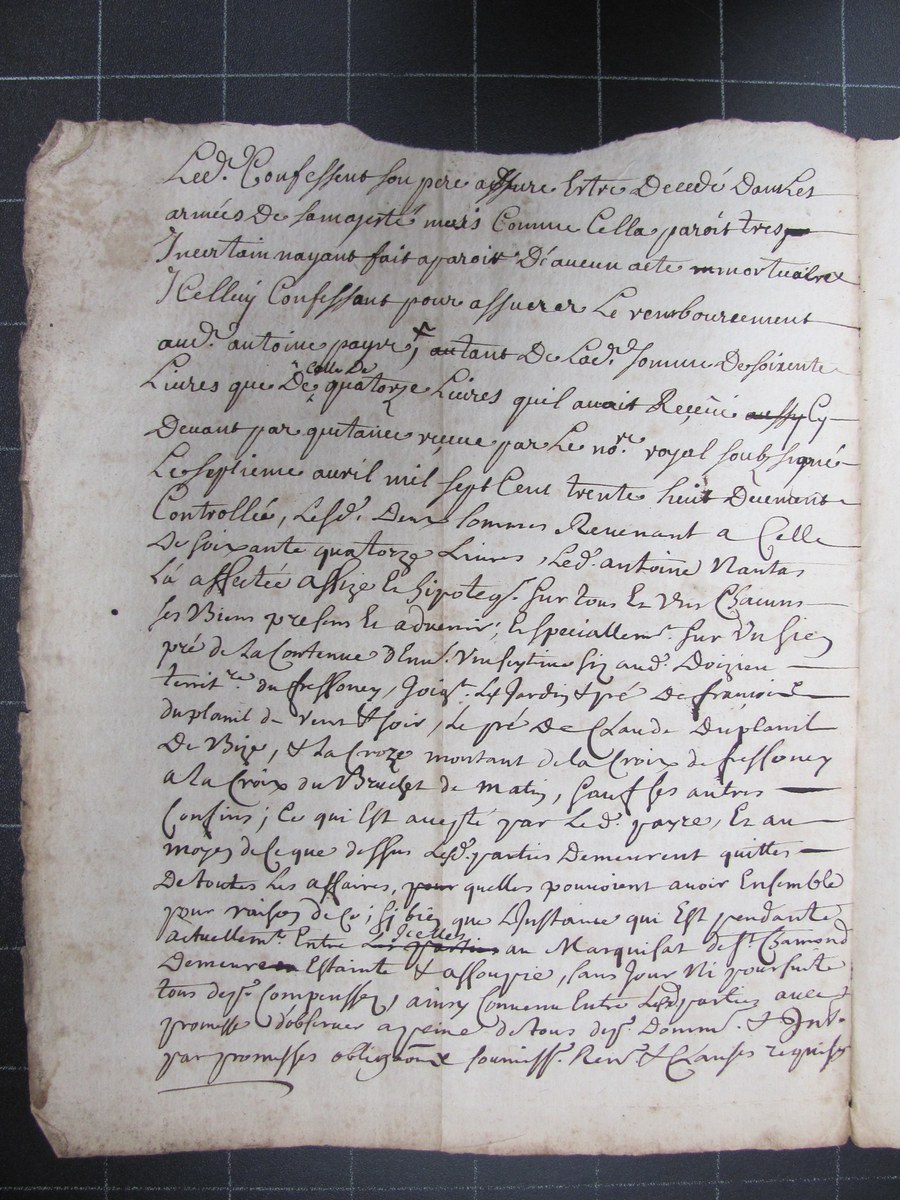 Led. Confessent son pere assure Estre Decedé Dans Les
armées De sa majesté mais Comme Cella paroit tres
Incertain nayant fait aparoir D'aucun acte mortuaire
Icelluy Confessant pour assurer Le remboursement
aud. antoine payre, tant De Lad. somme De soixente
Livres que De Celle De quatorze Livres quil avait Reçeüe aussy Cy
Devant par quitance reçeue par Le no.re royal soubsigné
Le septieme avril mil sept Cent trente huit Deuement
Controllée, Lesd. Deux sommes Revenant a Celle
De soixante quatorze Livres, Led. antoine Nantas
La affectée assize et hipoteq. sur tous Et uns Chacuns
ses Biens presens Et advenir, Et speciallem.t sur un sien
pré de La Contenue D'Env. une seytine siz aud. Doizieu
territ.re du fressoney, Joig.t Le Jardin & pré De françois
duplanil de vent & soir, Le pré De Claude Duplanil
De Bize, & La Croze montant de La Croix de fressoney
a La Croix du de matin, sauf ses autres
Confins; Ce qui Est accepté par Led. payre, Et au
moyen de Ce que dessus Lesd. parties Demeurent quittes
De toutes Les affaires, pour quelles pouvoient avoir Ensemble
pour raison de Ce; si bien que L'Instance qui Est pendante
actuellem.t Entre Les parties Icelles au Marquisat de St. Chamond
Demeure Estainte & assoupie, sans Jour Ni poursuite
tous dep. Compensses, ainsy Convenu Entre Lesd. parties avec
promesse d'observer a peine de tous dep. Domm. & Int.
par promesses obligaõns soumiss. Ren. & Clauses requises